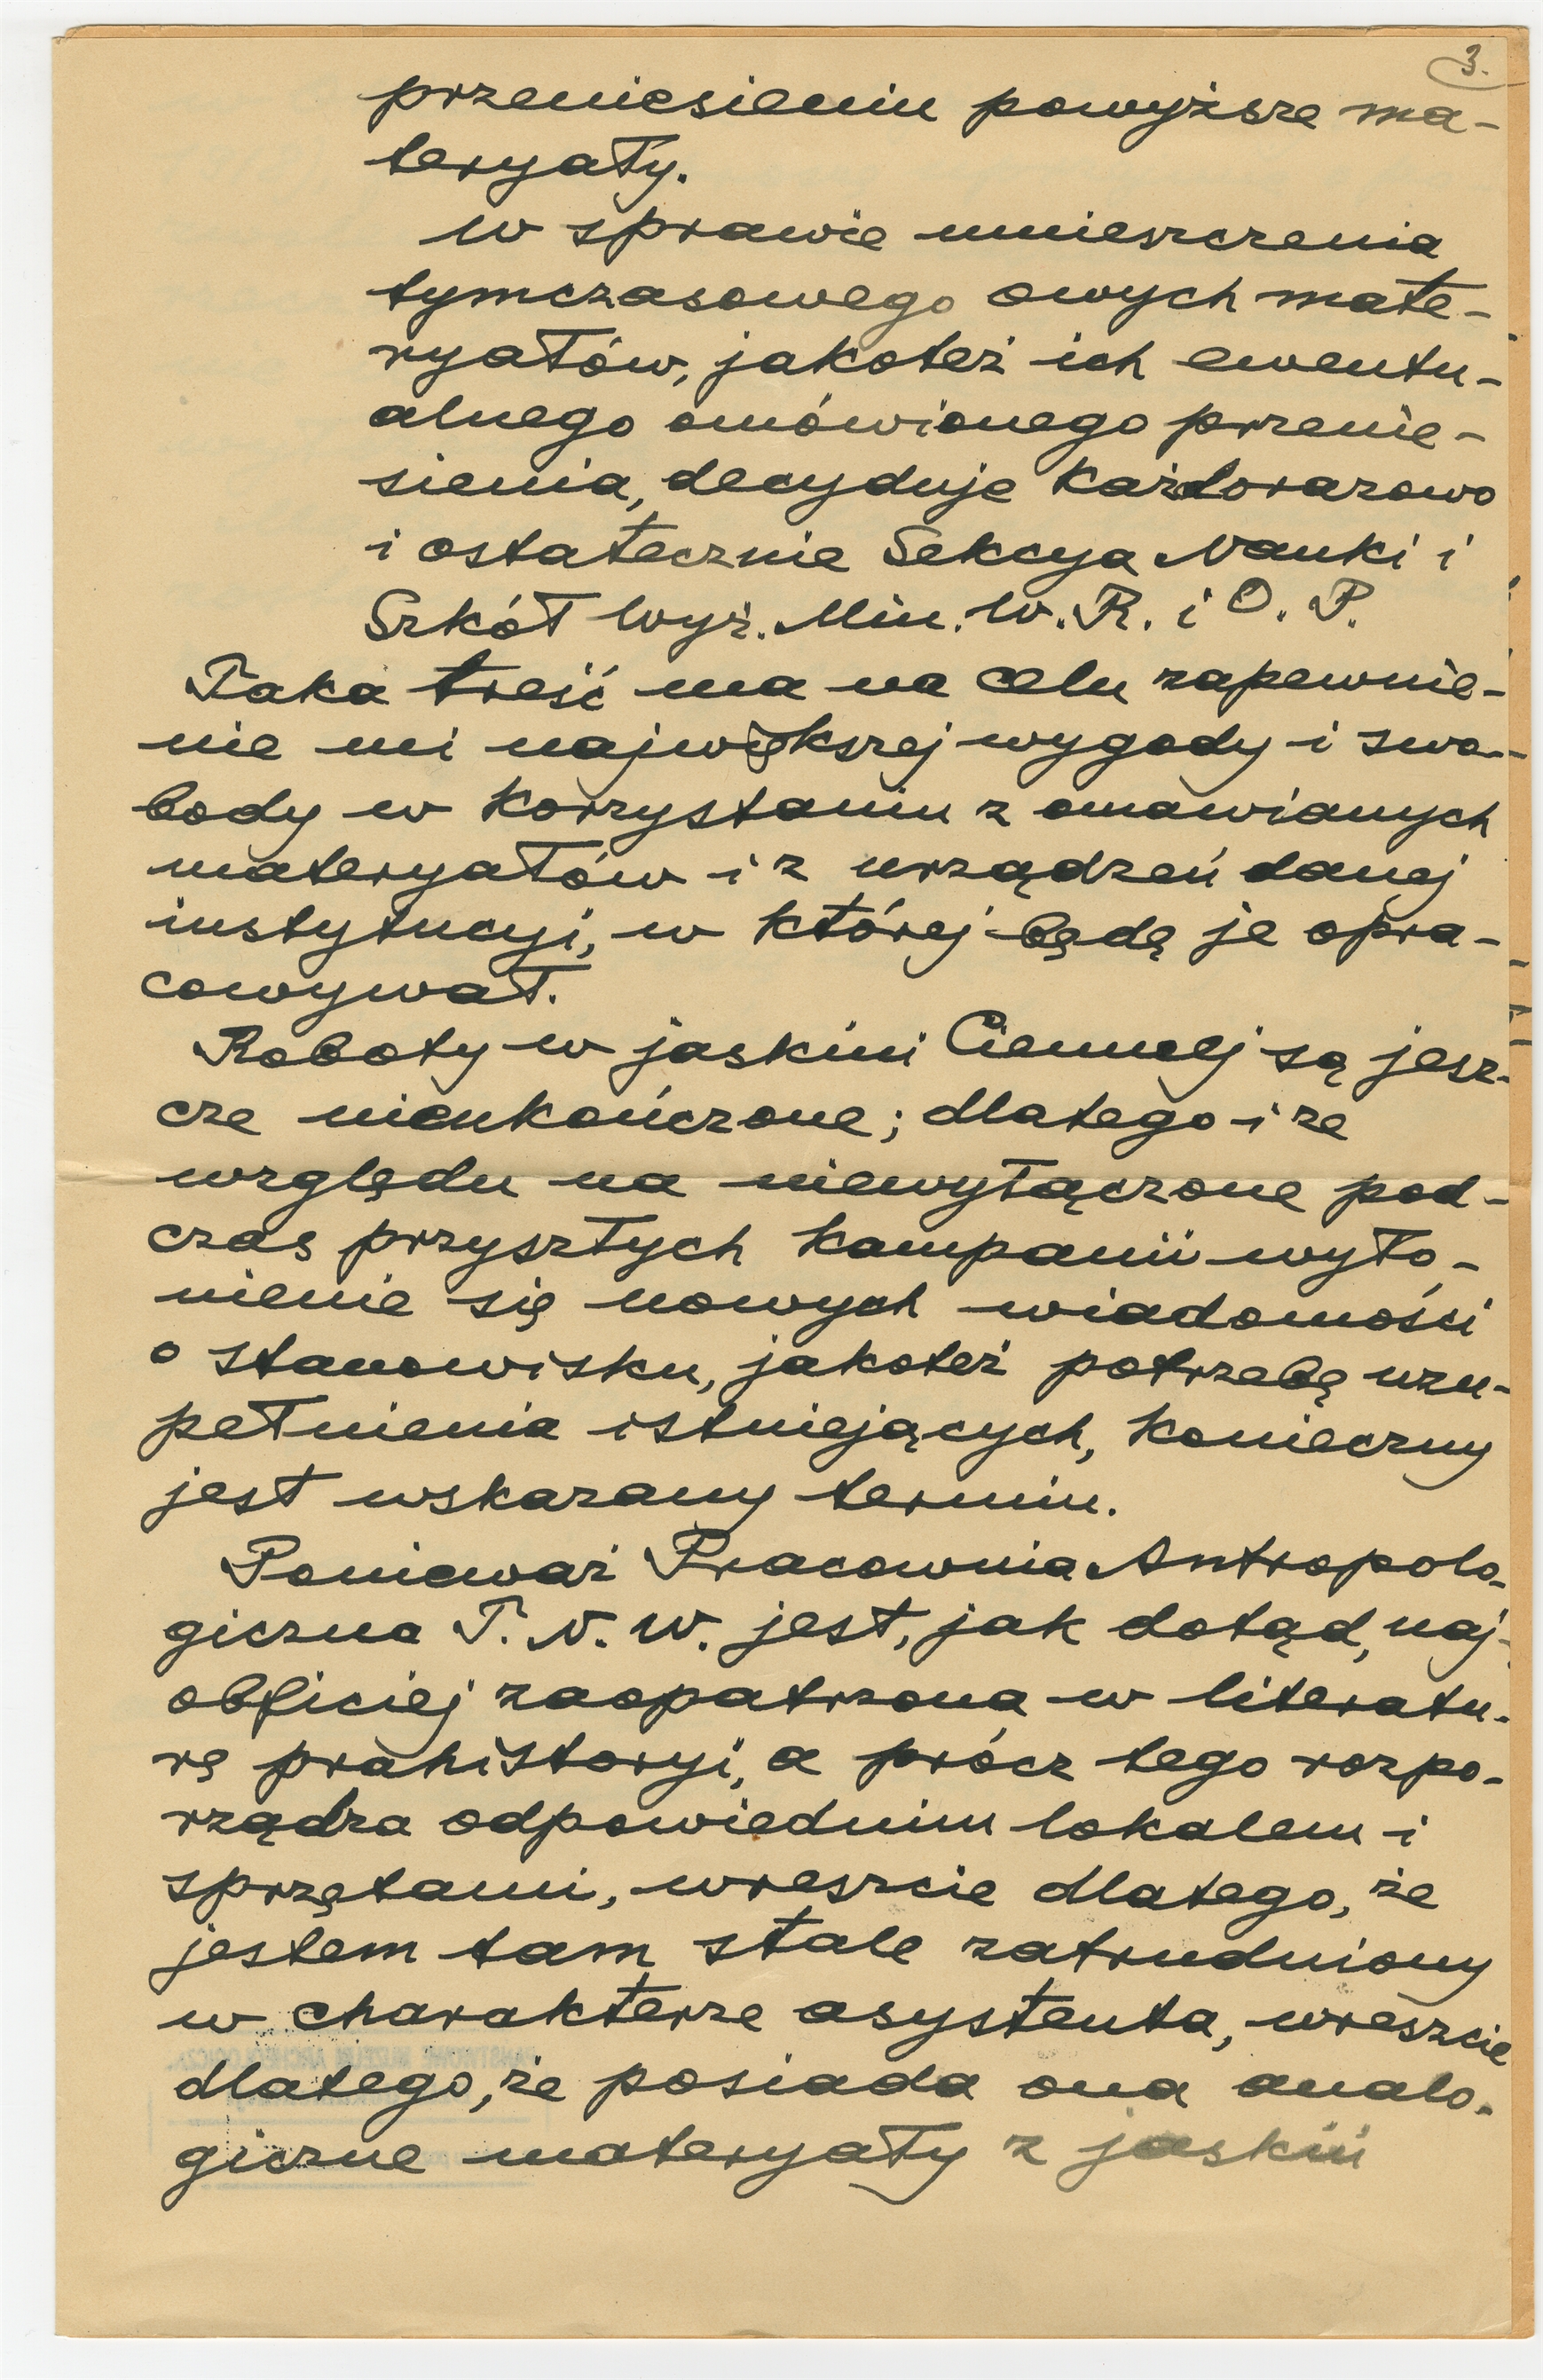 3.
przeniesieniu powyższe ma-
teryały.
w sprawie umieszczenia
tymczasowego owych mate-
ryałów, jakoteż ich ewentu-
alnego omówionego przenie-
sienia, decyduje każdorazowo
i ostatecznie Sekcya Nauki i
Szkół Wyż. Min. W. R. i O. P.
Taka treść ma na celu zapewnie-
nie mi największej wygody i swo-
body w korzystaniu z omawianych
materyałów i z urządzeń danej
instytucyi, w której będę je opra-
cowywał.
Roboty w jaskini Ciemnej są jesz-
cze nieukończone; dlatego i ze
względu na niewyłączone pod-
czas przyszłych kampanii wyło-
nienie się nowych wiadomości
o stanowisku, jakoteż potrzebę uzu-
pełnienia istniejących, konieczny
jest wskazany termin.
Ponieważ Pracownia Antropolo-
giczna T. N. W. jest, jak dotąd, naj-
obficiej zaopatrzona w literatu-
rę prahistoryi, a prócz tego rozpo-
rządza odpowiednim lokalem i
sprzętami, wreszcie dlatego, że
jestem tam stale zatrudniony
w charakterze asystenta, wreszcie
dlatego, że posiada ona analo-
giczne materyały z jaskiń